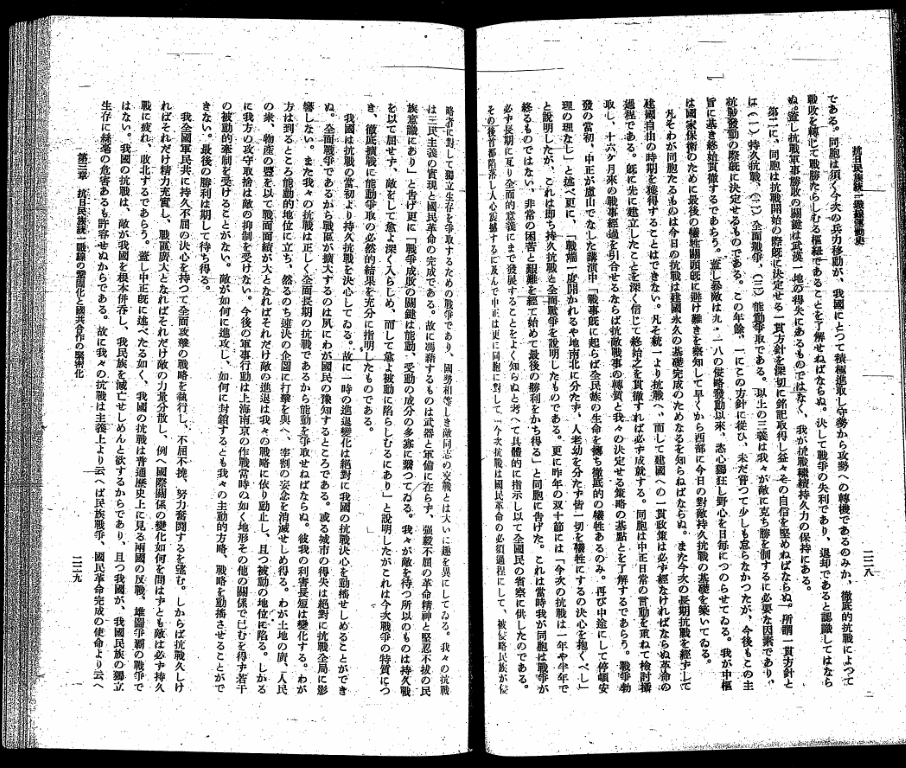 抗日民族統一戰線運動史
二二八
である。同胞は須く今次の兵力移動が、我國にとつて積極進取し守勢から攻勢への轉機であるのみか、徹底的抗戰によつて
戰敗を轉じて戰勝たらしむる樞紐であることを了解せねばならぬ。決して戰爭の失利であり、退却であると認識してはなら
ぬ。蓋し抗戰軍事勝敗の關鍵は武漢一地の得失にあるものではなく、我が抗戰繼續持久力の保持にある。
第二に、同胞は抗戰開始の際既に決定せる一貫方針を深切に銘記取得し益々その自信を堅めねばならぬ。所謂一貫方針と
は(一)持久抗戰、(二)全面戰爭、(三)能動爭取である。以上の三義は我々が敵に克ち勝を制するに必要な因素であり、
抗戰發動の際既に決定せるものである。この年餘、一にこの方針に從ひ、未だ曾つて少しも怠らなかつたが、今後もこの主
旨に基き終始貫徹するであらう。蓋し暴敵は九・一八の侵略發動以來、恣心獨狂し野心を日毎につのらせてゐる。我が中樞
は國家保衛のために最後の犧牲關頭既に避け難きを察知して早くから西部に今日の對敵持久抗戰の基礎を築いてゐる。
凡そわが同胞たるものは今日の抗戰は建國永久の基礎完成のためなるを知らねばならぬ。また今次の長期抗戰を經ずして
建國自由の時期を獲得することはできない。凡そ統一より抗戰へ、而して建國への一貫政策は必ず經なければならぬ革命の
過程である。既に先に建立したことを深く信じて終始之を貫徹すれば必ず成就する。同胞は中正日常の言動を重ねて檢討摘
取し、十六ケ月來の戰事經過を引合せるならば抗敵戰事の轉質と我々の決定せる策略の基點とを了解するであらう。戰爭勃
發の當初、中正が廬山でなした講演中、「戰事既に起らば全民族の生命を擲ち徹底的の犧牲あるのみ。再び中途にして停頓安
理の理なし」と述べ更に、「戰端一度開かれるや地南北に分たず、人老幼を分たず皆一切を犧牲にするの決心を抱くべし」
と說明したが、これは即ち持久抗戰と全面戰爭を說明したものである。更に昨年の双十節には「今次の抗戰は一年や半年で
終るものではない、非常の困苦と艱難を經て始めて最後の勝利をかち得る」と同胞に告げた。これは當時我が同胞は戰爭が
必ず長期に亙り全面的意義にまで發展することをよく知らぬと考へて具體的に指示し以て全國民の省察に供したのである。
その後首都陷落し人心震撼するに及んで中正は更に同胞に對して、「今次抗戰は國民革命の必須過程にして、被侵略民族が侵
略者に對して獨立生存を爭取するための戰爭であり、國勢相等しき敵同志の交戰とは大いに趣を異にしてゐる。我々の抗戰
は三民主義の實現と國民革命の完成である。故に憑藉するものは武器と軍備に在らず、强毅不屈の革命精神と堅忍不拔の民
族意識にあり」と告げ更に「戰爭成敗の關鍵は能動、受動の成分の多寡に繫つてゐる。我々が敵を待つ所以のものは持久戰
を以て屈せず、敵をして愈よ深く入らしめ、而して愈よ被動に陷らしむるにあり」と說明したがこれは今次戰爭の特質につ
き、徹底擴戰に能動爭取の必然的結果を充分に指明したものである。
我國は抗戰の當初より持久抗戰を決心してゐる。故に一時の進退變化は絕對に我國の抗戰決心を動搖せしめることができ
ぬ。全面戰爭であるから戰區が擴大するのは夙にわが國民の豫知するところである。或る城市の得失は絕對に抗戰全局に影
響しない。また我々の抗戰は正しく全面長期の抗戰であるから能動を爭取せねばならぬ。彼我の利害長短は變化する。わが
方は到るところ能動的地位に立ち、然るのち速決の企圖に打擊を與へ、宰割の妄念を消滅せしめ得る。わが土地の廣、人民
の衆、物産の豐を以て戰面面績が大となればそれだけ敵の進退は我々の戰略に依り動止し、且つ被動の地位に陷る。しかる
に我方の攻守取捨は敵の抑制を受けない。今後の軍事行動は上海南京の作戰當時の如く地形その他の關係で已むを得ず若干
の被動的牽制を受けることがない。敵が如何に進攻し、如何に封鎖するとも我々の主動的方略、戰略を動搖させることがで
きない。最後の勝利は期して待ち得る。
我全國軍民共に持久不屈の決心を持つて全面攻擊の戰略を執行し、不屈不撓、努力奮鬪するを望む。しからば抗戰久しけ
ればそれだけ精力充實し、戰區廣大となればそれだけ敵の力量分散し、例へ國際關係の變化如何を問はずとも敵は必ず持久
戰に疲れ、敗北するであらう。蓋し中正既に述べたる如く、我國の抗戰は普通歷史上に見る兩國の反戰、雄圖爭霸の戰爭で
はない。我國の抗戰は、敵が我國を根本併呑し、我民族を滅亡せしめんと欲するからであり、且つ我國が、我國民族の獨立
生存に絲毫の危害あるも許容せぬからである。故に我々の抗戰は主義上より云へば民族戰爭、國民革命完成の使命より云へ
第三章 抗日民族統一戰線の鞏固化と國共合作の緊密化
二二九